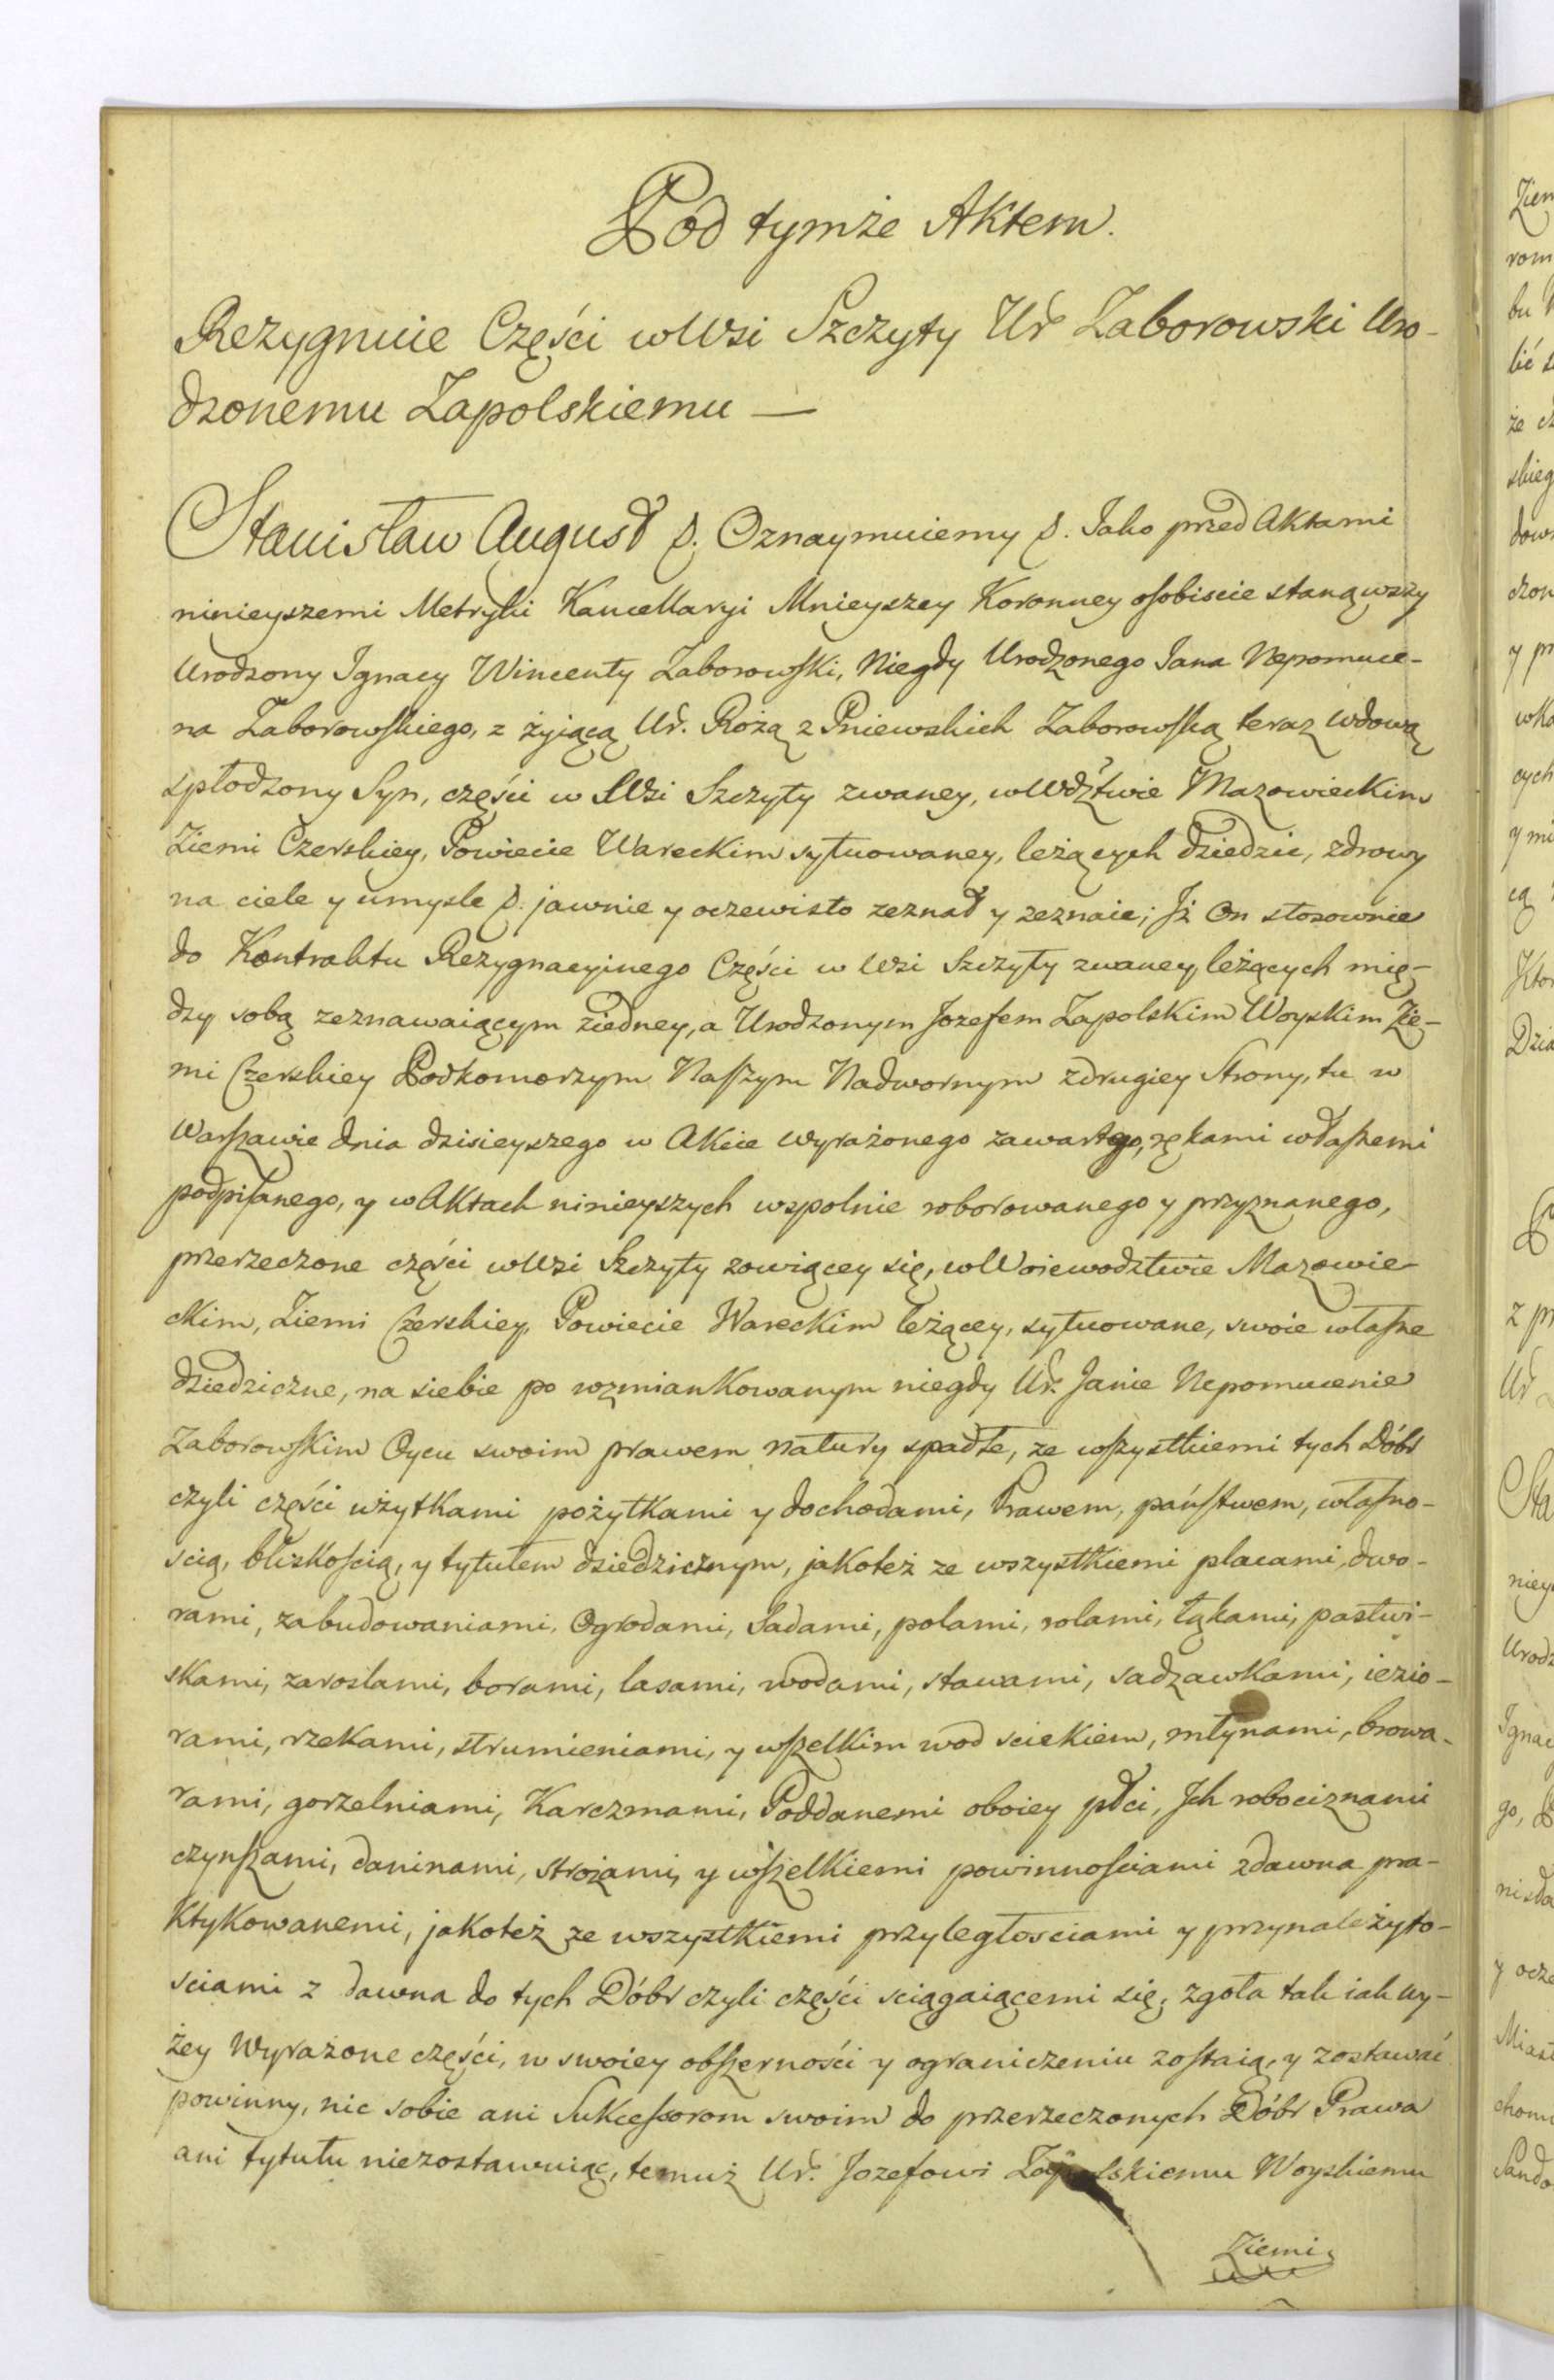 Pod tymże Aktem.
Rezygnuie Części w Wsi Szczyty Ur Zaborowski Uro-
dzonemu Zapolskiemu —
Stanisław August &. Oznaymuiemy &. Jako przed Aktami
ninieyszemi Metryki Kancellaryi Mnieyszey Koronney osobiscie stanąwszy
Urodzony Ignacy Wincenty Zaborowski, Niegdy Urodzonego Jana Nepomuce-
na Zaborowskiego, z żyiącą Ur. Rożą z Pniewskich Zaborowską teraz wdową
spłodzony Syn, części w Wsi Szczyty zwaney, w Wdztwie Mazowieckim
Ziemi Czerskiey, Powiecie Wareckim sytuowaney, leżących dziedzic, zdrowy
na ciele y umysle &. jawnie y oczewisto zeznał y zeznaie; Jż On stosownie
do Kontraktu Rezygnacyinego Części w Wsi Szczyty zwaney, leżących mię-
dzy sobą zeznawaiącym ziedney, a Urodzonym Jozefem Zapolskim Woyskim Zie-
mi Czerskiey Podkomorzym Naszym Nadwornym zdrugiey Strony, tu w
Warszawie dnia dzisieyszego w Akcie wyrażonego zawartego, rękami własnemi
podpisanego, y w Aktach ninieyszych wspolnie roborowanego y przyznanego,
przerzeczone części w Wsi Szczyty zowiącey się, w Woiewodztwie Mazowie-
ckim, Ziemi Czerskiey, Powiecie Wareckim leżącey, sytuowane, swoie własne
dziedziczne, na siebie po wzmiankowanym niegdy Ur. Janie Nepomucenie
Zaborowskim Oycu swoim prawem natury spadłe, ze wszystkiemi tych Dóbr
czyli części użytkami pożytkami y dochodami, Prawem, państwem, własno-
scią, bliskoscią, y tytułem dziedzicznym, jakoteż ze wszystkiemi placami, dwo-
rami, zabudowaniami, Ogrodami, Sadami, polami, rolami, łąkami, pastwi-
skami, zaroslami, borami, lasami, wodami, stawami, sadzawkami, iezio-
rami, rzekami, strumieniami, y wszelkim wod sciekiem, młynami, browa-
rami, gorzelniami, Karczmami, Poddanemi oboiey płci, Jch robociznami
czynszami, daninami, strożami, y wszelkiemi powinnosciami zdawna pra-
ktykowanemi, jakoteż ze wszystkiemi przyległosciami y przynależyto-
sciami z dawna do tych Dóbr czyli części sciągaiącemi się, zgoła tak iak wy-
żey Wyrażone części, w swoiey obszerności y ograniczeniu zostaią, y zostawać
powinny, nic sobie ani Sukcessorom swoim do przerzeczonych Dóbr Prawa
ani tytułu niezostawuiąc, temuż Ur. Jozefowi Zapolskiemu Woyskiemu
Ziemi